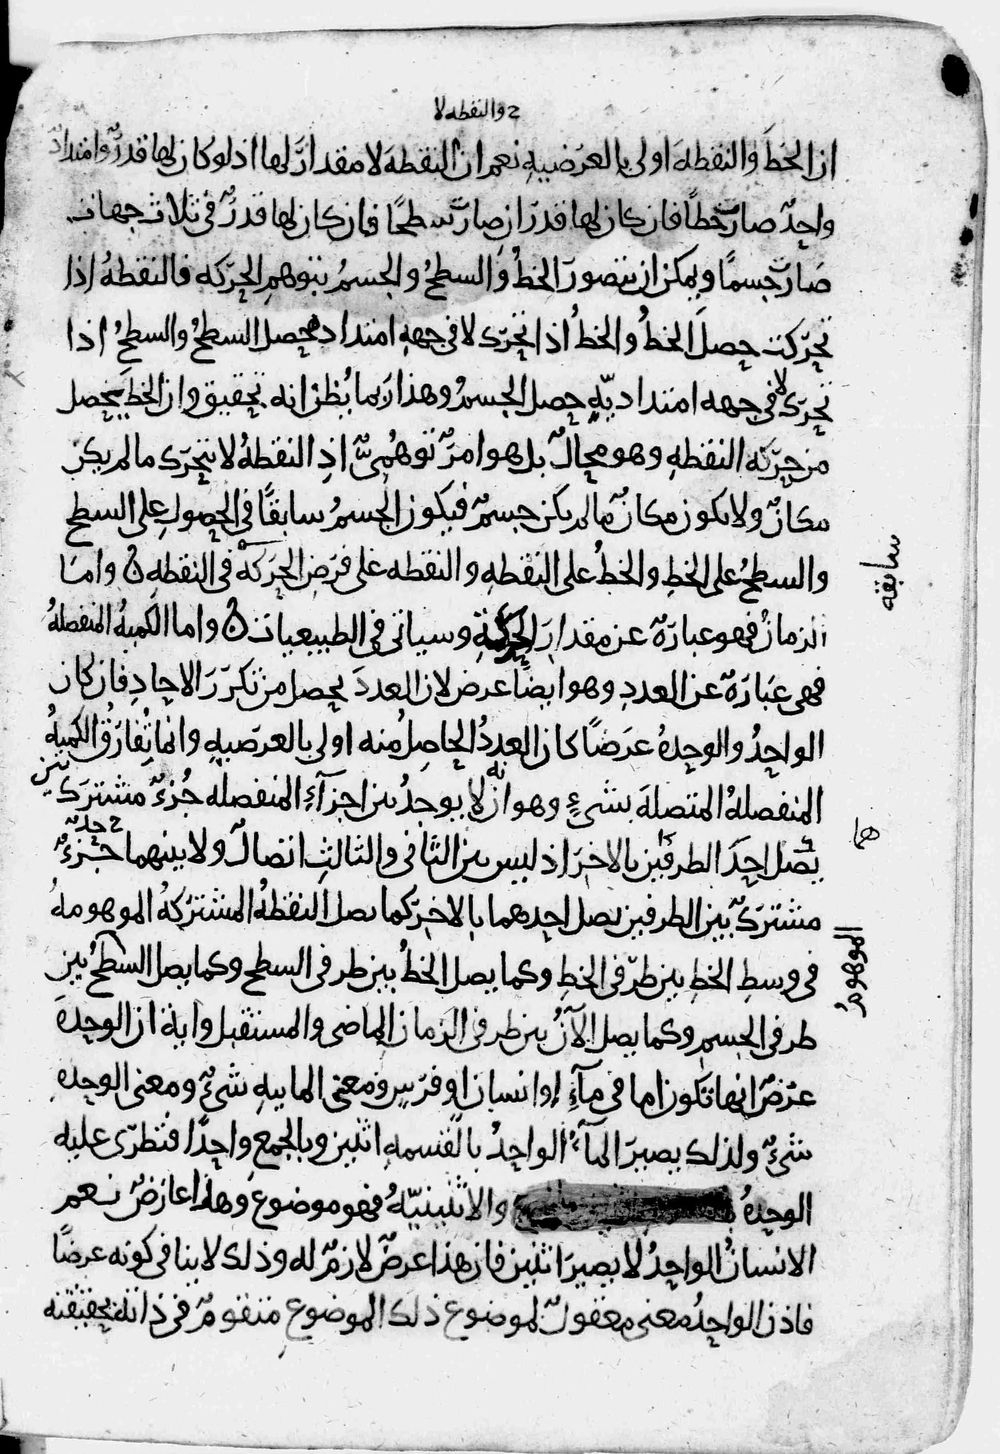 ح والنقطه لا
ان الخط والنقطة اولى بالعرضيه نعم ان النقطة لا مقدار لها اذ لو كان لها قدرٌ وامتدادٌ
واحدٌ صارت خطاً فان كان لها قدران صارت سطحًا فان كان لها قدرٌ في ثلاث جهات
صارت جسمًا ويمكن ان يتصور الخطُ والسطحُ والجسمُ بتوهم الحركه فالنقطهُ اذا
تحركت حصل الخطُ والخطُ اذا تحرك لا في جهه امتداده حصل السطحُ والسطحُ اذا
تحرك لا في جهه امتداديّه حصل الجسمُ وهذا ربما يُظن انه تحقيق وان الخط يحصل
من حركه النقطه وهو محالٌ بل هو امرٌ توهُمىٌّ اذِ النقطهُ لا تتحرك ما لم يكن
مكانٌ ولا يكون مكانٌ ما لم يكن جسمٌ فيكون الجسمُ سابقًا في الحصول على السطح
والسطحُ على الخطِ والخطُ على النقطهِ والنقطه على فرض الحركه في النقطه ۞ واما
سابقه
الزمانُ فهو عبارةٌ عن مقدار الحركة وسياتى في الطبيعيات ۞ واما الكميهُ المنفصلهُ
فهى عبارةٌ عن العدد وهو ايضًا عرض لان العددَ يحصل من تكرر الاحادِ فان كان
الواحدُ والوحدهُ عرضًا كان العددُ الحاصلُ منه اولى بالعرضيه وانما تُفارقُ الكميهُ
المنفصلهُ المتصلهَ بشىءٍ وهو انه لا يوجدُ بين اجزآءِ المنفصله جُزءٌ مشتركٌ بين
هما
يصل احد الطرفين بالاخر اذ ليس بين الثانى والثالثِ اتصالٌ ولا بينهما جزءٌ
ح حدٌ
مشتركٌ بين الطرفين يصل احدهما بالاخر كما يصل النقطهُ المشتركهُ الموهومهُ
الموهومُ
في وسطِ الخطِ بين طرفى الخطِ وكما يصل الخطُ بين طرفى السطح وكما يصل السطحُ بين
طرفى الجسم وكما يصل الآنُ بين طرفى الزمان الماضى والمستقبل واية ان الوحدة
عرضٌ انها تكون اما في مآءٍ او انسان او فرسٍ ومعنى المايه شىءٌ ومعنى الوحده
شىءٌ ولذلك يصير المآءُ الواحدُ بالقسمه اثنين وبالجمع واحدًا فتطرى عليه
الوحدهُ والاثنينيّةُ فهو موضوع وهذا عارضٌ نعم
الانسانُ الواحدُ لا يصير اثنين فان هذا عرضٌ لازمٌ له وذلك لا ينافى كونه عرضًا
فاذن الواحدُ معنى معقولٌ لموضوع ذلك الموضوع متقومٌ فى ذاته بحقيقته